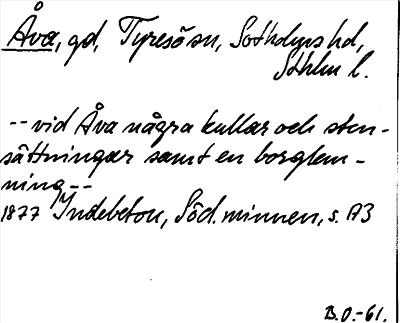 Åva, gd, Tyresö sn, Sotholms hd,
Sthlm l.
-- vid Åva några kullar och sten-
sättningar samt en borglem-
ning --
1877 Indebetou, Söd. minnen, s. 173
B.O.-61.